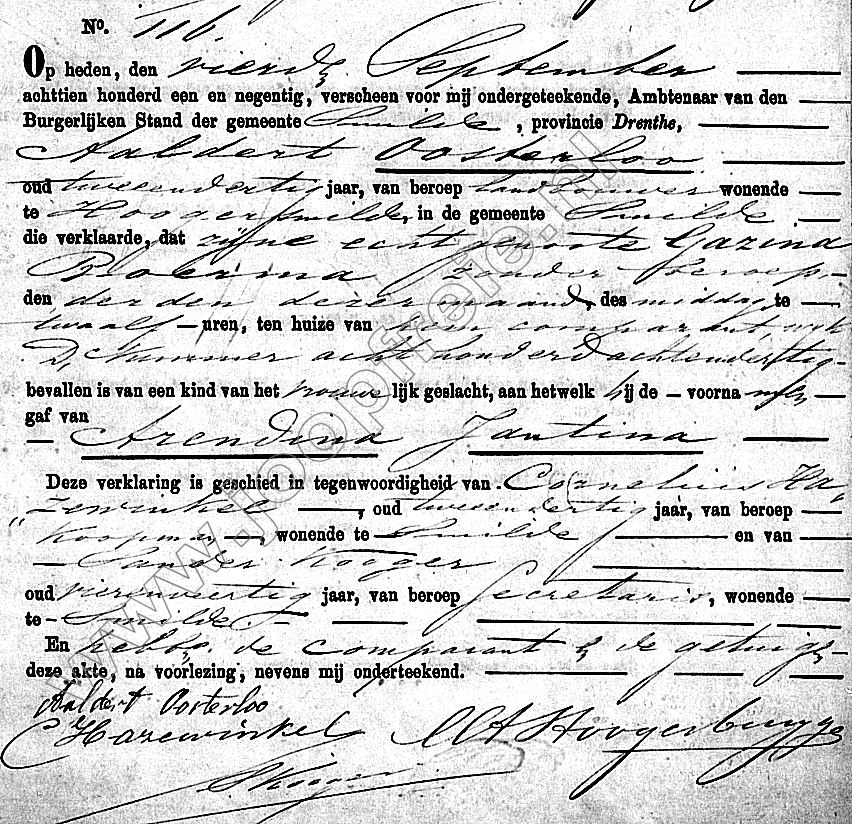 No. 116.
Op heden, den vierden September
achttien honderd een en negentig, verscheen voor mij ondergeteekende, Ambtenaar van den
Burgerlijken Stand der gemeente Smilde, provincie Drenthe,
Aaldert Oosterloo
oud tweeendertig jaar, van beroep landbouwer wonende
te Hoogersmilde, in de gemeente Smilde
die verklaarde, dat zijne echtgenoote Gazina
Bloerma zonder beroep
den derden dezer maand, des middags te
twaalf uren, ten huize van hem comparant, wijk
D, Nummer acht honderd achtendertig
bevallen is van een kind van het vrouwelijk geslacht, aan hetwelk hij de voornamen
gaf van
Arendina Jantina
Deze verklaring is geschied in tegenwoordigheid van Cornelius Ha
"zewinkel, oud tweeendertig jaar, van beroep
Koopman, wonende te Smilde en van
Sander Kooger
oud vierenveertig jaar, van beroep Secretaris, wonende
te Smilde
En hebben de comparant & de getuigen
deze akte, na voorlezing, nevens mij onderteekend.
Aaldert Oosterloo
C Hazewinkel Hoogerbrugge
S Kooger
www.joopfreie.nl